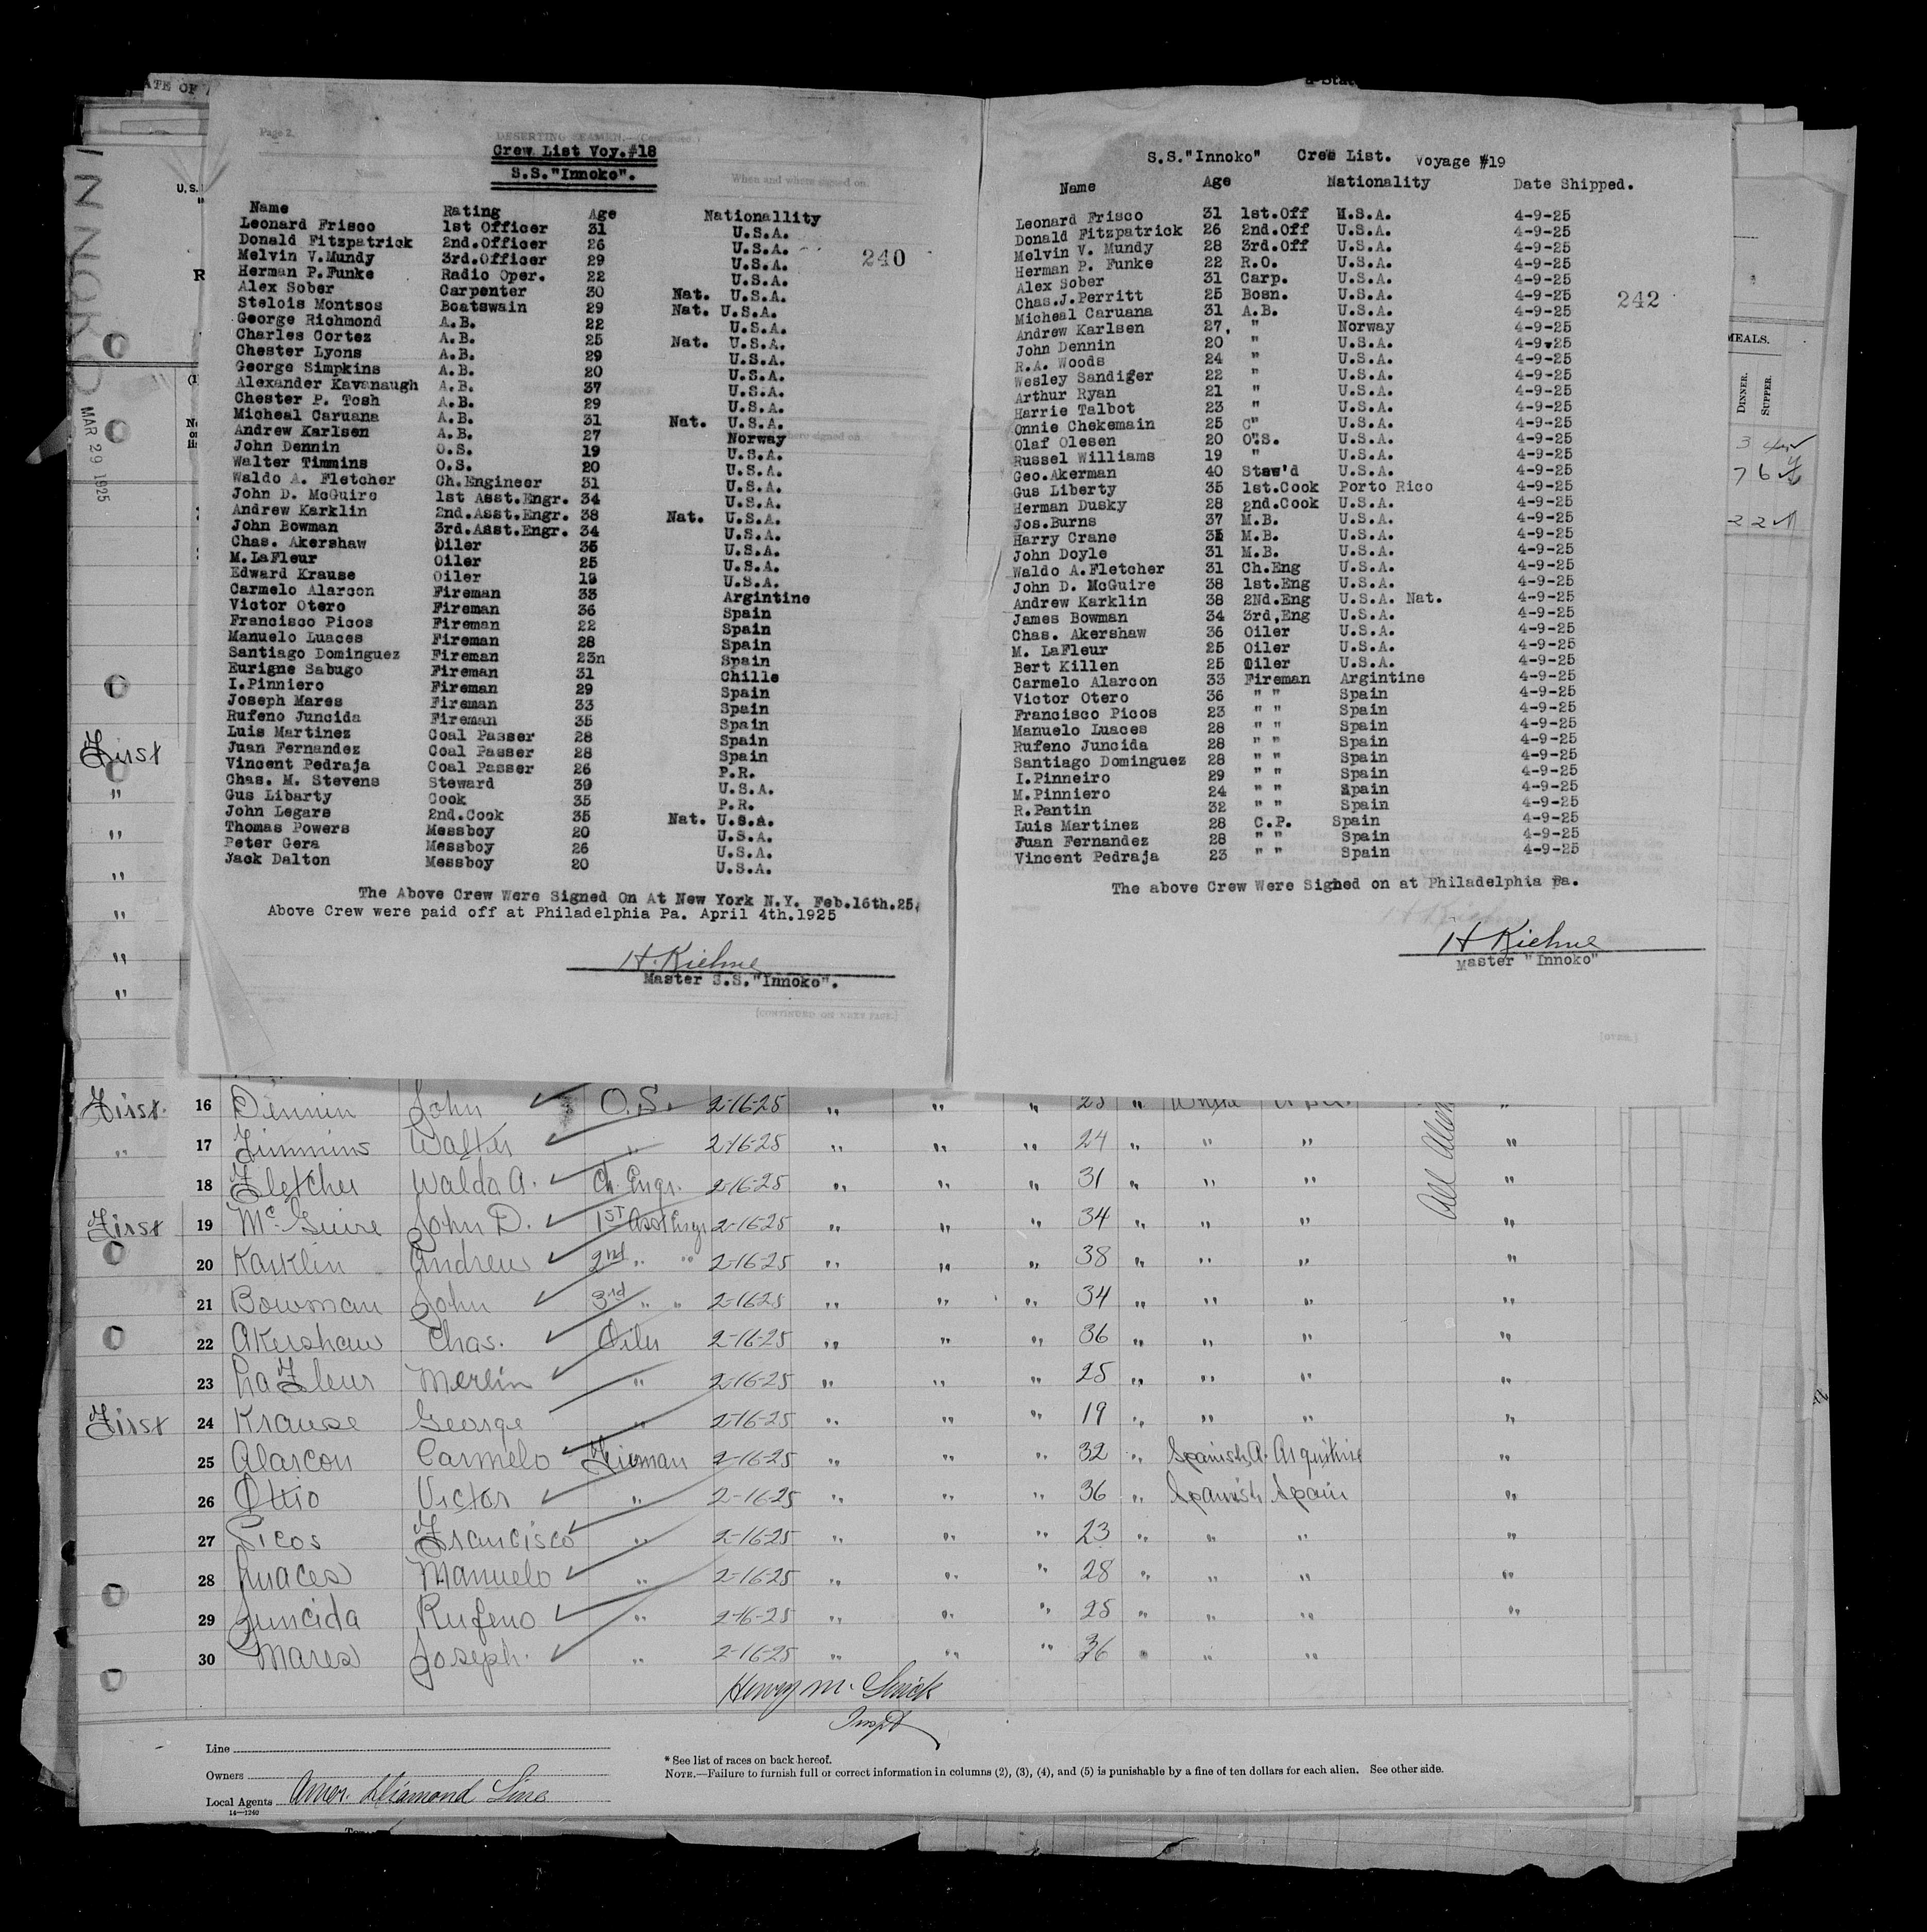 ATE OF
INNOKO
MAR 29 1925
U, S.
R
First
"
"
"
"
"
"
Page 2.
DESERTING SEAMEN.—(Continued.)
Crew List Voy.#18
S.S."Innoko".
Name
When and where signed on.
Name Rating Age Nationallity
Leonard Frisco 1st Officer 31 U.S.A.
Donald Fitzpatrick 2nd.Officer 26 U.S.A.
Melvin V.Mundy 3rd.Officer 29 U.S.A.
240
Herman P.Funke Radio Oper. 22 U.S.A.
Alex Sober Carpenter 30 Nat. U.S.A.
Stelois Montsos Boatswain 29 Nat. U.S.A.
George Richmond A.B. 22 U.S.A.
Charles Cortez A.B. 25 Nat. U.S.A.
Chester Lyons A.B. 29 U.S.A.
George Simpkins A.B. 20 U.S.A.
Alexander Kavanaugh A.B. 37 U.S.A.
Chester P. Tosh A.B. 29 U.S.A.
Micheal Caruana A.B. 31 Nat. U.S.A.
Andrew Karlsen A.B. 27 Norway
John Dennin O.S. 19 U.S.A.
Walter Timmins O.S. 20 U.S.A.
Waldo A. Fletcher Ch.Engineer 31 U.S.A.
John D. McGuire 1st Asst.Engr. 34 U.S.A.
Andrew Karklin 2nd.Asst.Engr. 38 Nat. U.S.A.
John Bowman 3rd.Asst.Engr. 34 U.S.A.
Chas. Akershaw Oiler 36 U.S.A.
M.LaFleur Oiler 25 U.S.A.
Edward Krause Oiler 19 U.S.A.
Carmelo Alarcon Fireman 33 Argintine
Victor Otero Fireman 36 Spain
Francisco Picos Fireman 22 Spain
Manuelo Luaces Fireman 28 Spain
Santiago Dominguez Fireman 23n Spain
Eurigne Sabugo Fireman 31 Chille
I.Pinniero Fireman 29 Spain
Joseph Mares Fireman 33 Spain
Rufeno Juncida Fireman 35 Spain
Luis Martinez Coal Passer 28 Spain
Juan Fernandez Coal Passer 28 Spain
Vincent Pedraja Coal Passer 26 P.R.
Chas. M. Stevens Steward 39 U.S.A.
Gus Libarty Cook 35 P.R.
John Legare 2nd.Cook 35 Nat. U.S.A.
Thomas Powers Messboy 20 U.S.A.
Peter Gera Messboy 26 U.S.A.
Jack Dalton Messboy 20 U.S.A.
The Above Crew Were Signed On At New York N.Y. Feb.16th.25.
Above Crew were paid off at Philadelphia Pa. April 4th.1925
H. Kiehne
Master S.S."Innoko".
[CONTINUED ON NEXT PAGE.]
S.S."Innoko" Cree List. Voyage #19
Name Age Nationality Date Shipped.
Leonard Frisco 31 1st.Off U.S.A. 4-9-25
Donald Fitzpatrick 26 2nd.Off U.S.A. 4-9-25
Melvin V. Mundy 28 3rd.Off U.S.A. 4-9-25
Herman P. Funke 22 R.O. U.S.A. 4-9-25
Alex Sober 31 Carp. U.S.A. 4-9-25
Chas.J.Perritt 25 Bosn. U.S.A. 4-9-25
242
Micheal Caruana 31 A.B. U.S.A. 4-9-25
Andrew Karlsen 27, " Norway 4-9-25
John Dennin 20 " U.S.A. 4-9-25
R.A. Woods 24 " U.S.A. 4-9-25
Wesley Sandifer 22 " U.S.A. 4-9-25
Arthur Ryan 21 " U.S.A. 4-9-25
Harrie Talbot 23 " U.S.A. 4-9-25
Onnie Chekemain 25 " U.S.A. 4-9-25
Olaf Olesen 20 O.S. U.S.A. 4-9-25
Russel Williams 19 " U.S.A. 4-9-25
Geo.Akerman 40 Stew'd U.S.A. 4-9-25
Gus Liberty 35 1st.Cook Porto Rico 4-9-25
Herman Dusky 28 2nd.Cook U.S.A. 4-9-25
Jos.Burns 37 M.B. U.S.A. 4-9-25
Harry Crane M.B. U.S.A. 4-9-25
John Doyle 31 M.B. U.S.A. 4-9-25
Waldo A.Fletcher 31 Ch.Eng U.S.A. 4-9-25
John D. McGuire 38 1st.Eng U.S.A. 4-9-25
Andrew Karklin 38 2Nd.Eng U.S.A. Nat. 4-9-25
James Bowman 34 3rd,Eng U.S.A. 4-9-25
Chas. Akershaw 36 Oiler U.S.A. 4-9-25
M. LaFleur 25 Oiler U.S.A. 4-9-25
Bert Killen 25 Oiler U.S.A. 4-9-25
Carmelo Alarcon 33 Fireman Argintine 4-9-25
Victor Otero 36 " " Spain 4-9-25
Francisco Picos 23 " " Spain 4-9-25
Manuelo Luaces 28 " " Spain 4-9-25
Rufeno Juncida 28 " " Spain 4-9-25
Santiago Dominguez 28 " " Spain 4-9-25
I.Pinneiro 29 " " Spain 4-9-25
M.Pinniero 24 " " Spain 4-9-25
R.Pantin 32 " " Spain 4-9-25
Luis Martinez 28 C.P. Spain 4-9-25
Juan Fernandez 28 " " Spain 4-9-25
Vincent Pedraja 23 " " Spain 4-9-25
The above Crew Were Signed on at Philadelphia Pa.
H Kiehne
Master "Innoko"
[OVER.]
MEALS.
DINNER. SUPPER.
First 16 Dennin John O.S. 2-16-25 " " " 23 " White U.S.A. "
" 17 Timmins Walter " 2-16-25 " " " 24 " " " "
18 Fletcher Waldo A. Ch. Engr. 2-16-25 " " " 31 " " " "
First 19 McGuire John D. 1st Asst Engr 2-16-25 " " " 34 " " " "
20 Karklin Andrew 2nd " " 2-16-25 " " " 38 " " " "
21 Bowman John 3rd " " 2-16-25 " " " 34 " " " "
22 Akershaw Chas. Oiler 2-16-25 " " " 36 " " " "
23 LaFleur Merlin " 2-16-25 " " " 25 " " " "
First 24 Krause George " 2-16-25 " " " 19 " " " "
25 Alarcon Carmelo Fireman 2-16-25 " " " 32 " Spanish A. Argentine "
26 Otero Victor " 2-16-25 " " " 36 " Spanish Spain "
27 Picos Francisco " 2-16-25 " " " 23 " " " "
28 Luaces Manuelo " 2-16-25 " " " 28 " " " "
29 Juncida Rufeno " 2-16-25 " " " 25 " " " "
30 Mares Joseph " 2-16-25 " " " 36 " " "
Henry M.
Inspt
Line
Owners
Local Agents Amer. Diamond Line
14—1240
* See list of races on back hereof.
NOTE.—Failure to furnish full or correct information in columns (2), (3), (4), and (5) is punishable by a fine of ten dollars for each alien. See other side.